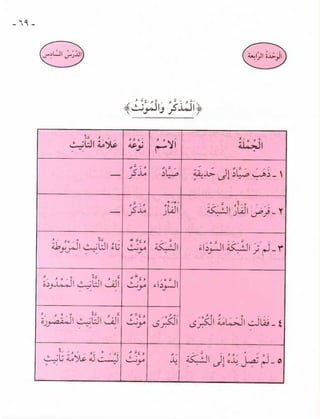 - ٦٩ -
الوَحْدَةُ الرَّابِعَةُ
الدَّرْسُ السَّادِسُ
﴿ المُذَكَّرُ وَالمُؤَنَّثُ ﴾
الجُمْلَةُ الاِسْمُ نَوْعُهُ عَلَامَةُ التَّأْنِيثِ
١ - ذَهَبَ صَيَّادٌ إِلَى حَدِيقَةٍ صَيَّادٌ مُذَكَّرٌ —
٢ - قَرَضَ الفَأْرُ الشَّبَكَةَ الفَأْرُ مُذَكَّرٌ —
٣ - لَمْ تَرَ الشَّبَكَةَ السَّوْدَاءَ الشَّبَكَةَ مُؤَنَّثٌ تَاءُ التَّأْنِيثِ المَرْبُوطَةُ
السَّوْدَاءَ مُؤَنَّثٌ أَلِفُ التَّأْنِيثِ المَمْدُودَةُ
٤ - فَقَالَتِ الحَمَامَةُ الكُبْرَى الكُبْرَى مُؤَنَّثٌ أَلِفُ التَّأْنِيثِ المَقْصُورَةُ
٥ - لَمْ تَصِلْ يَدُهُ إِلَى الشَّبَكَةِ يَدُ مُؤَنَّثٌ لَيْسَتْ لَهُ عَلَامَةُ تَأْنِيثٍ